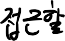 접근할